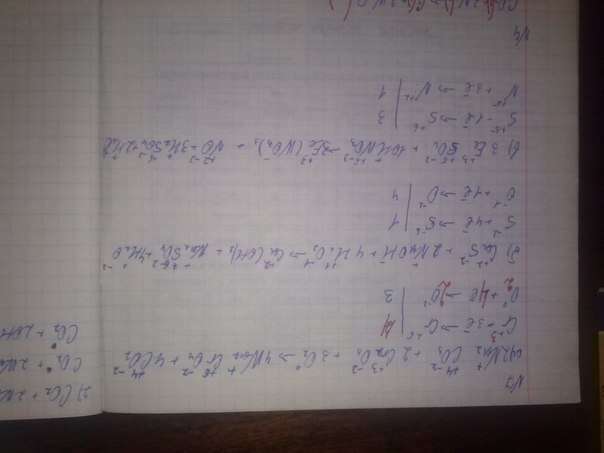 4Na₂CO₃ + 2Cr₂O₃ + 3O₂⁰ → 4Na₂CrO₄ + 4CO₂
Cr⁺³ - 3ē → Cr⁺⁶ | 4
O₂⁰ + 4ē → 2O⁻² | 3
CuS + 2NaOH + 4H₂O₂ → Cu(OH)₂ + Na₂SO₄ + 4H₂O
S + 4ē → S | 1
O⁻¹ + 1ē → O⁻² | 4
в) 3FeSO₃ + 10HNO₃ → 3Fe(NO₃)₃ + NO + 3H₂SO₄ + 2H₂O
S - 1ē → S⁺⁶ | 3
N⁺⁵ + 3ē → N⁺² | 1
N4
2) CO₂ + 2Na
CO₂ + 2Na
CO₂ + 2OH